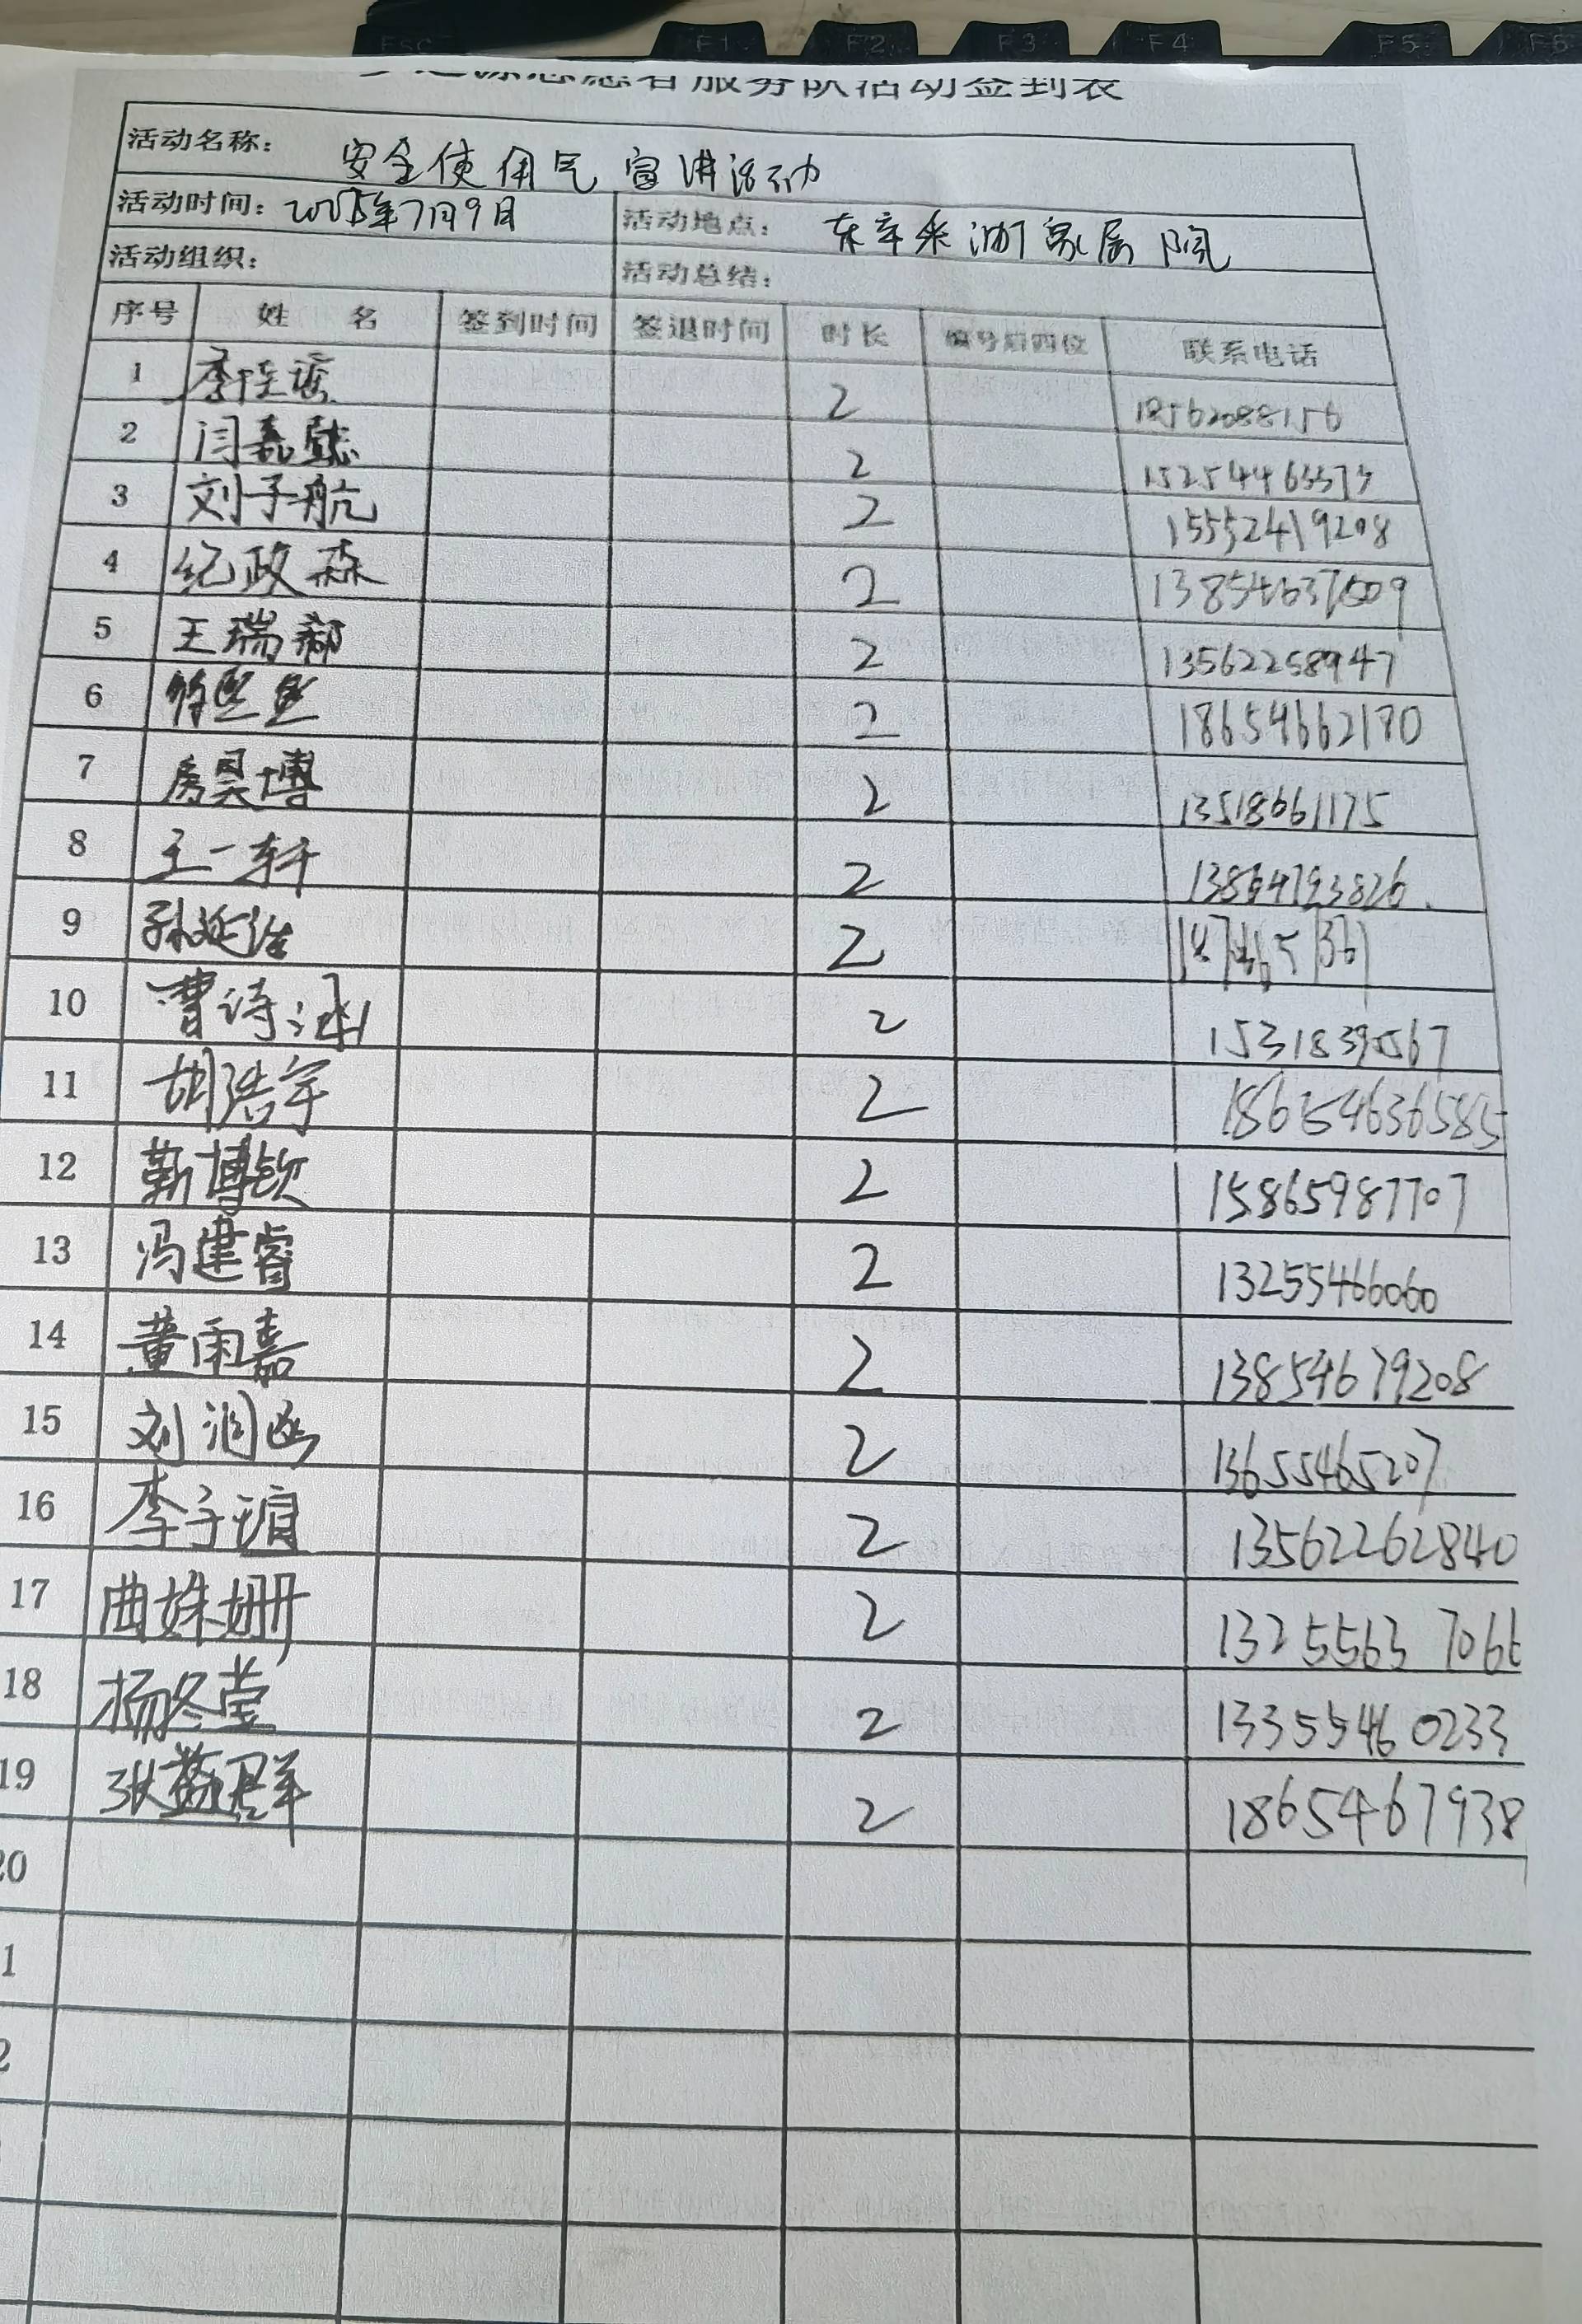 ESC F1 F2 F3 F4 F5 F6
志愿者服务队活动签到表
活动名称： 安全使用气 宣讲活动
活动时间：2025年7月9日 活动地点： 东辛采油厂家属院
活动组织： 活动总结：
序号 姓 名 签到时间 签退时间 时长 编号后四位 联系电话
1 李 2 18562088156
2 闫嘉懿 2 152544
3 刘子航 2 15552419208
4 纪政森 2 13854637509
5 王瑞 2 13562258947
6 徐熙 2 18654662170
7 房昊博 2 13518661175
8 王一轩 2 13864793826.
9 孙延 2
10 曹诗涵 2 1531839567
11 胡浩宇 2 18654636585
12 靳博钦 2 15865987707
13 冯建睿 2 13255466060
14 黄雨嘉 2 13854679208
15 刘润 2 13655465207
16 李子瑄 2 13562262840
17 曲姝姗 2 1325563 7066
18 杨冬莹 2 13355460233
19 张 群 2 1865467938
20
1
2